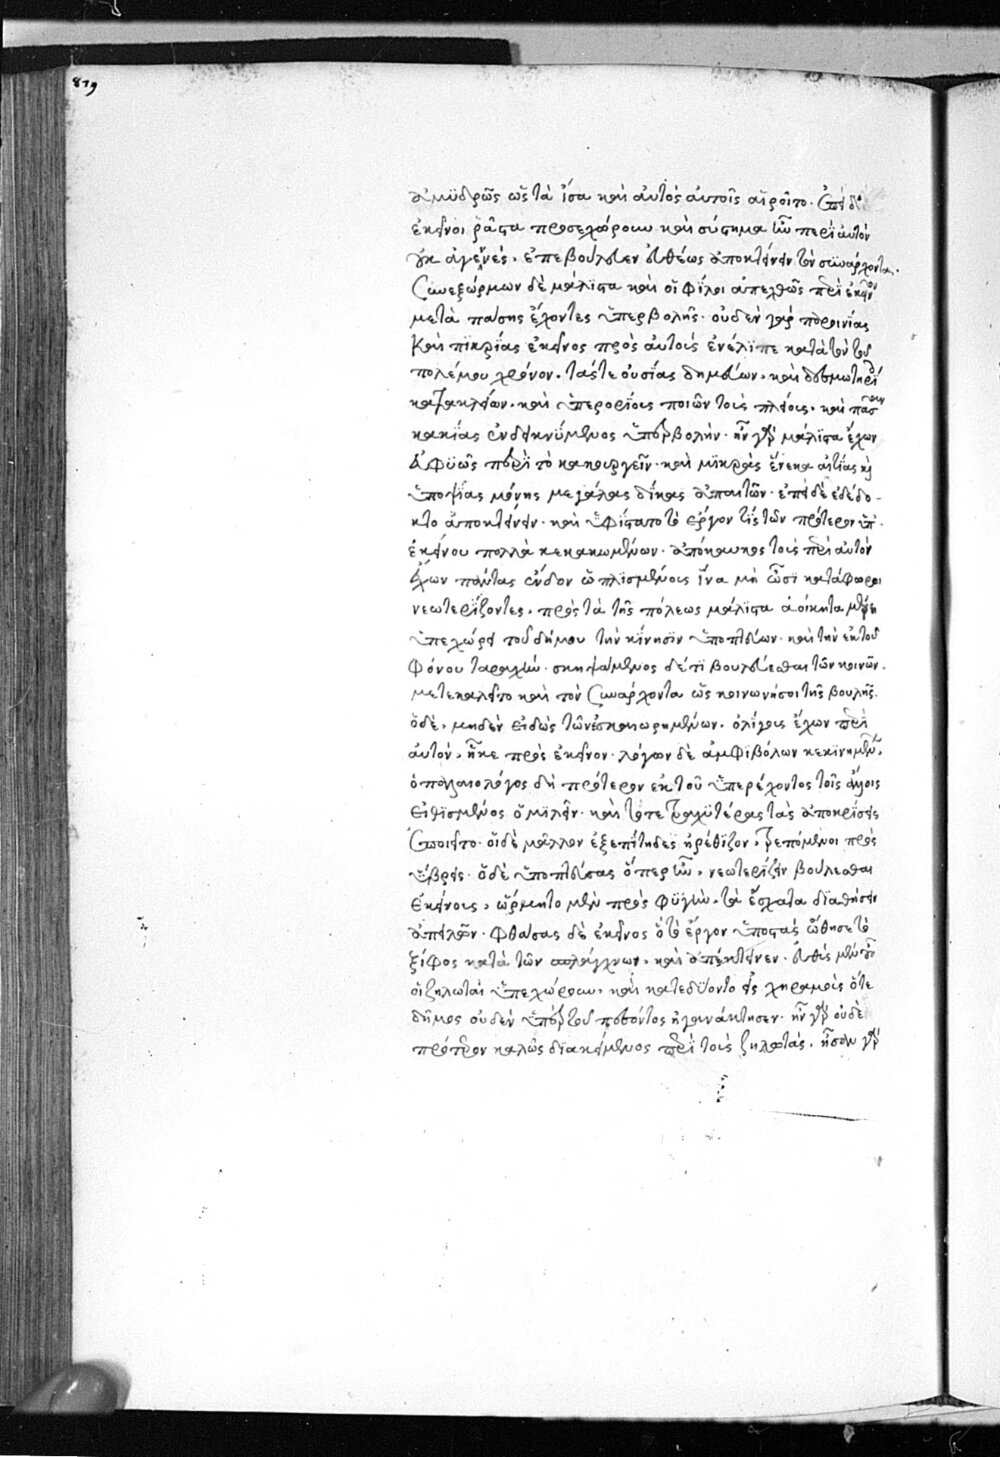 819
ἀμυδρῶς ὥστε τὰ ἴσα καὶ αὐτὸς αὐτοῖς αἱροῖτο. ἐπεὶ δ'
ἐκεῖνοι ῥᾷστα προσεχώρουν καὶ σύστημα ἦν περὶ αὐτὸν
οὐκ ἀγεννὲς, ἐπεβούλευεν εὐθέως ἀποκτεῖναι τὸν συνάρχοντα.
συνεξώρμων δὲ μάλιστα καὶ οἱ φίλοι ἀπεχθῶς πρὸς ἐκεῖνον
μετὰ πάσης ἔχοντες ὑπερβολῆς. οὐδὲν γὰρ παροινίας
καὶ πικρίας ἐκεῖνος πρὸς αὐτοὺς ἐνέλιπε κατὰ τὸν τοῦ
πολέμου χρόνον. τάς τε οὐσίας δημεύων. καὶ δεσμωτηρίῳ
κατακλείων. καὶ ὑπερορίους ποιῶν τοὺς πλείους. καὶ πᾶσαν
κακίας ἐνδεικνύμενος ὑπερβολήν. ἦν γὰρ μάλιστα ἔχων
εὐφυῶς περὶ τὸ κακουργεῖν. καὶ μικρᾶς ἕνεκα αἰτίας καὶ
ὑποψίας μόνης μεγάλας δίκας ἀπαιτῶν. ἐπεὶ δὲ ἐδέδο-
κτο ἀποκτείνειν. καὶ ὑφίστατο τὸ ἔργον τις τῶν πρότερον ὑπ'
ἐκείνου πολλὰ κεκακωμένων. ἀπόκαυκος τοὺς περὶ αὐτὸν
ἔχων πάντας ἔνδον ὡπλισμένους ἵνα μὴ ὦσι κατάφωροι
νεωτερίζοντες, πρὸς τὰ τῆς πόλεως μάλιστα ἀοίκητα μέρη
ὑπεχώρει τοῦ δήμου τὴν κίνησιν ὑποπτεύων. καὶ τὴν ἐκ τοῦ
φόνου ταραχήν. σκηψάμενος δέ τι βουλεύεσθαι τῶν κοινῶν.
μετεκαλεῖτο καὶ τὸν συνάρχοντα ὡς κοινωνήσοι τῆς βουλῆς.
ὁ δὲ, μηδὲν εἰδὼς τῶν ἐσκαιωρημένων. ὀλίγους ἔχων περὶ
αὐτὸν, ἧκε πρὸς ἐκεῖνον. λόγων δὲ ἀμφιβόλων κεκινημένων,
ὁ παλαιολόγος δὴ πρότερον ἐκ τοῦ ὑπερέχοντος τοῖς ἄλλοις
εἰθισμένος ὁμιλεῖν. καὶ τότε τραχυτέρας τὰς ἀποκρίσεις
ἐποιεῖτο. οἱ δὲ μᾶλλον ἐξεπίτηδες ἠρέθιζον, τρεπόμενοι πρὸς
ὕβρεις. ὁ δὲ ὑποπτεύσας ὅπερ ἦν, νεωτερίζειν βούλεσθαι
ἐκείνους, ὥρμητο μὲν πρὸς φυγὴν. τὰ ἔσχατα διαθήσειν
ἀπειλῶν. φθάσας δὲ ἐκεῖνος ὁ τὸ ἔργον ὑποστὰς ὤθησε τὸ
ξίφος κατὰ τῶν σπλάγχνων, καὶ ἀπέκτεινεν. εὐθὺς μὲν οὖν
οἱ ζηλωταὶ ὑπεχώρουν. καὶ κατεδύοντο εἰς χηραμοὺς ὅτε
δῆμος οὐδὲν ὑπὲρ τοῦ πεσόντος ἠγανάκτησεν. ἦν γὰρ οὐδὲ
πρότερον καλῶς διακείμενος περὶ τοὺς ζηλωτάς. ᾔδεσαν γὰρ